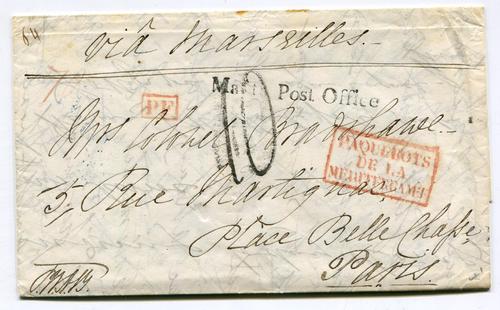 64
viâ Marseilles.
Malta Post Office
P.F.
10
Mrs Colonel Bradshawe
PAQUEBOTS
DE LA
MÉDITERRANÉE
5, Rue Martignac
Place Belle Chasse
Paris.